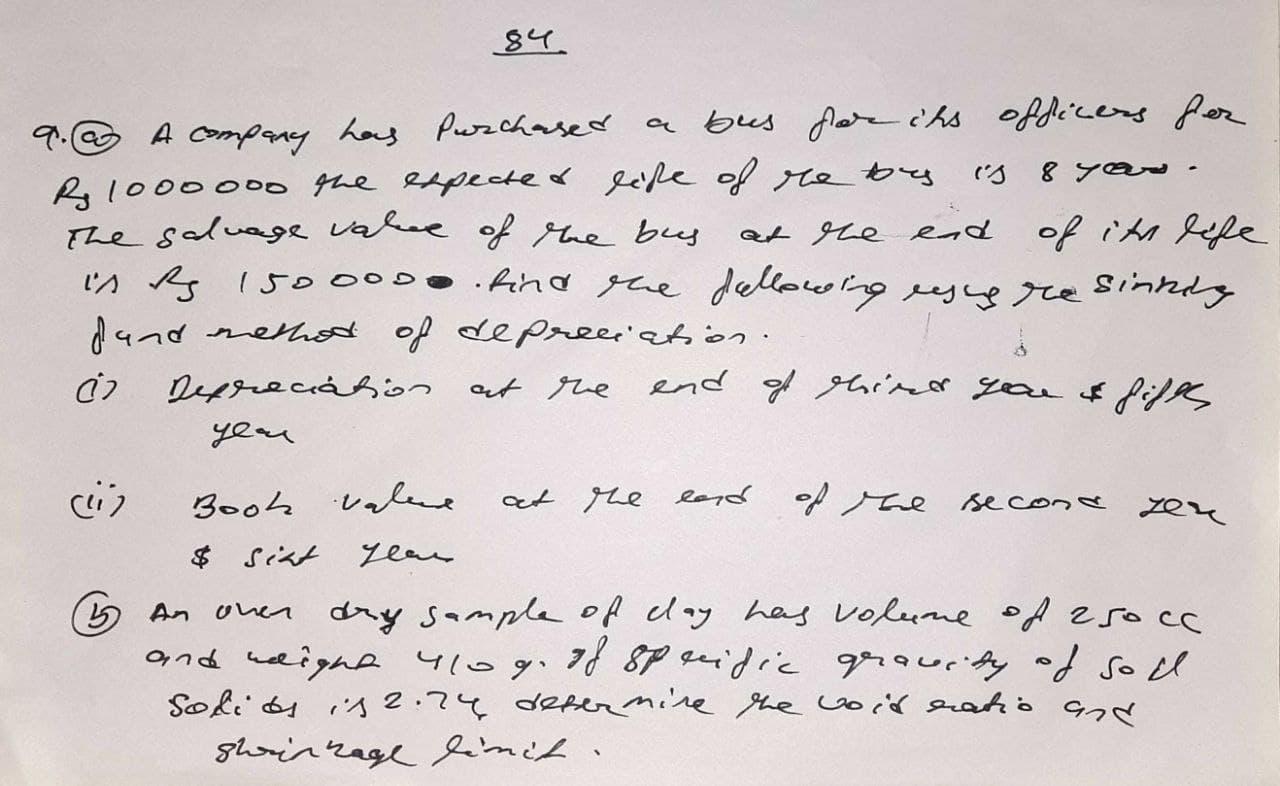 84
9. (a) A company has Purchased a bus for its officers for
Rs 1000000 the expected life of the bus is 8 year.
The salvage value of the bus at the end of its life
is Rs 150000 . find the following using the Sinking
fund method of depreciation.
(i) Depreciation at the end of third year & fifth
year
(ii) Book value at the end of the second year
& sixt year
(b) An oven dry sample of clay has volume of 250 cc
and weight 410 g. If specific gravity of soil
Solids is 2.74 determine the void ratio and
shrinkage limit.